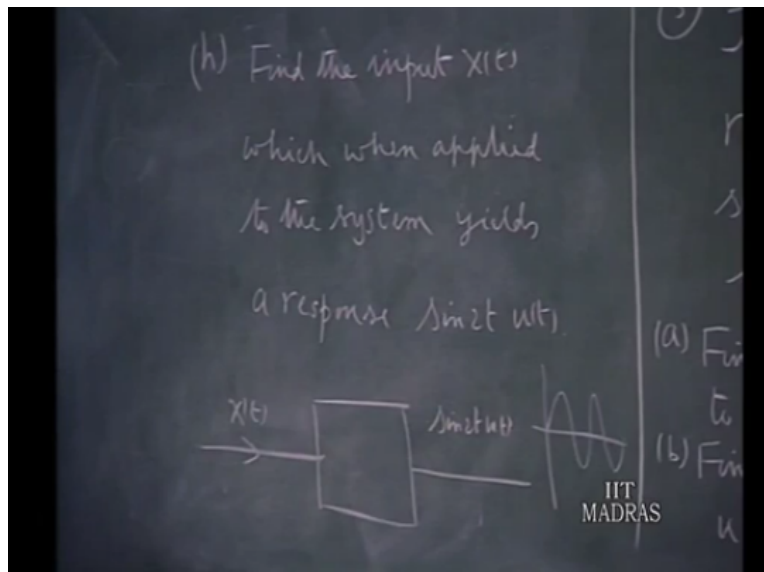 (h) Find the input x(t)
which when applied
to the system yields
a response sin2t u(t).
x(t)
sin2t u(t)
(a) Fin
to
(b) Fin
u
IIT
MADRAS